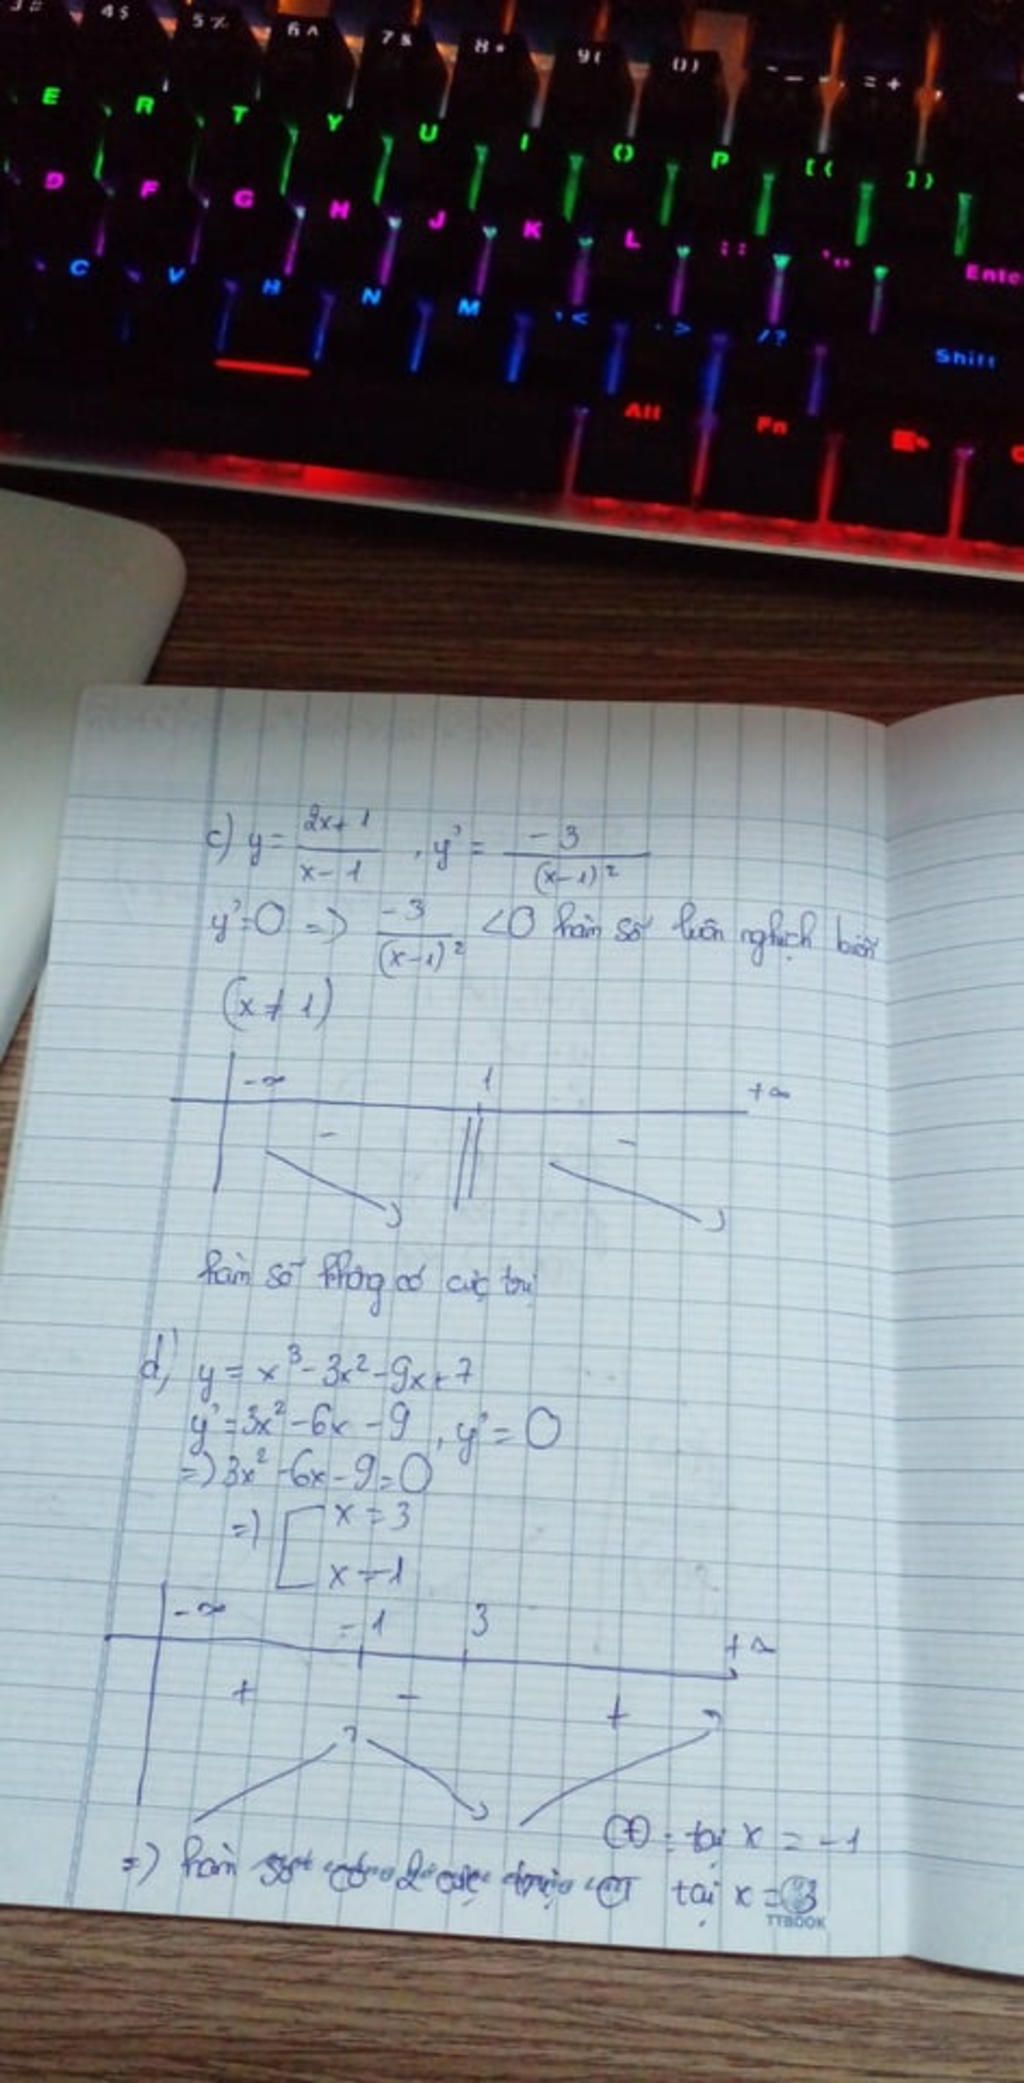 3 #
4 $
5 %
6 ^
7 &
8 *
9 (
0 )
- _
= +
E R T Y U I O P [ { ] }
D F G H J K L ; : ' " Enter
C V B N M , < . > / ? Shift
Alt Fn
c) y = (2x+1)/(x-1) , y' = -3/(x-1)²
y'=0 => -3/(x-1)² <0 hàm số luôn nghịch biến
(x ≠ 1)
-∞ 1 +∞
- || -
hàm số không có cực trị
d, y = x³ - 3x² - 9x + 7
y' = 3x² - 6x - 9 , y' = 0
=> 3x² - 6x - 9 = 0
=> [ x = 3
x = -1
-∞ -1 3 +∞
+ - +
CĐ : tại x = -1
=> hàm số có 2 cực trị CT tại x = 3
TTBOOK